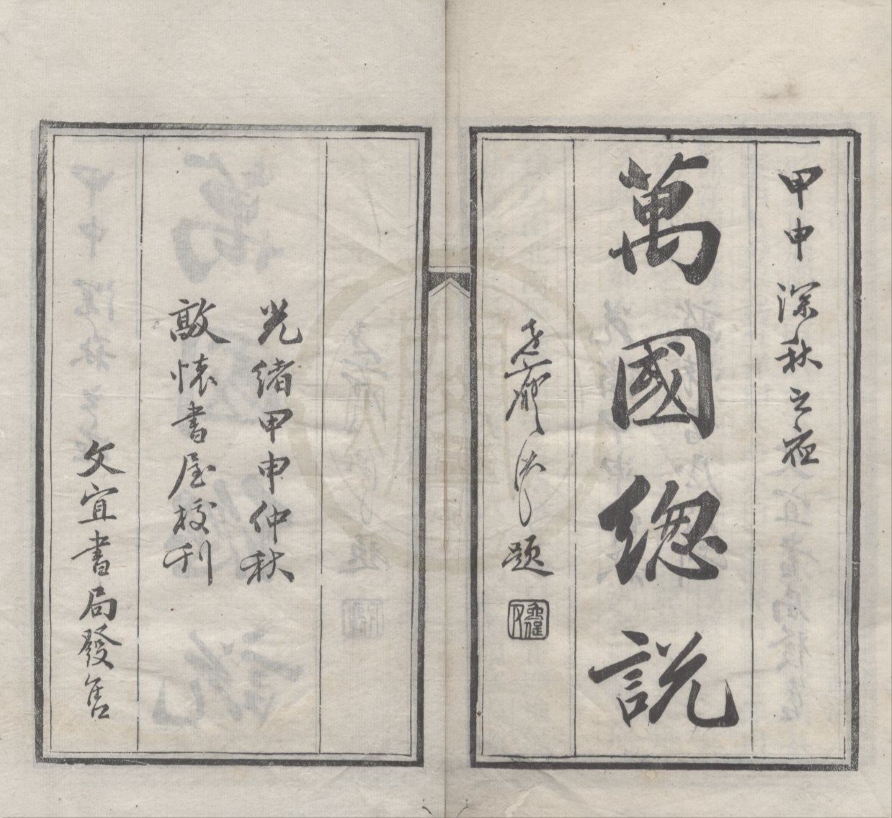 甲申深秋之夜
萬國總説
題
光緒甲申仲秋
敞懷書屋校刊
文宜書局發售